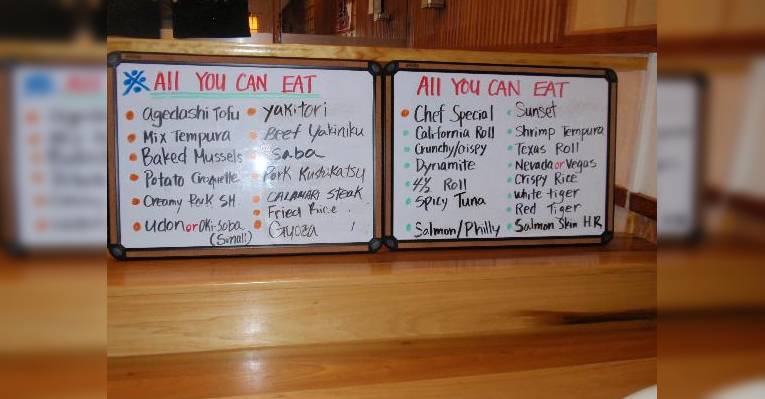 ALL YOU CAN EAT
Agedashi Tofu
Mix Tempura
Baked Mussels
Potato Croquette
Creamy Pork SH
Udon or Oki-Soba
(Small)
Yakitori
Beef Yakiniku
Saba
Pork Kushikatsu
CALAMARI STEAK
Fried Rice
Gyoza
ALL YOU CAN EAT
Chef Special
California Roll
Crunchy/crispy
Dynamite
Roll
Spicy Tuna
Salmon/Philly
Sunset
Shrimp Tempura
Texas Roll
Nevada or Vegas
Crispy Rice
White tiger
Red Tiger
Salmon Skin H.R